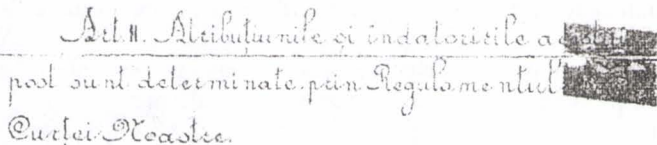 Art. II. Atribuțiunile și indatoririle acestui
post sunt determinate prin Regulamentul
Curței Noastre.